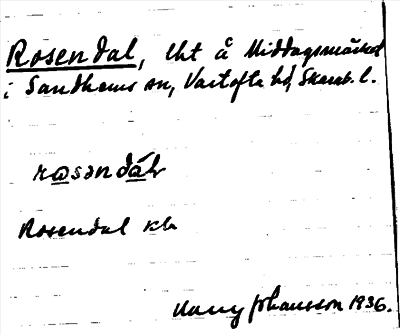 Rosendal, lht å Middagsmärket
i Sandhems sn, Vartofta hd, Skarab. l.
rɷsəndál
Rosendal kb
Harry Johansson 1936.